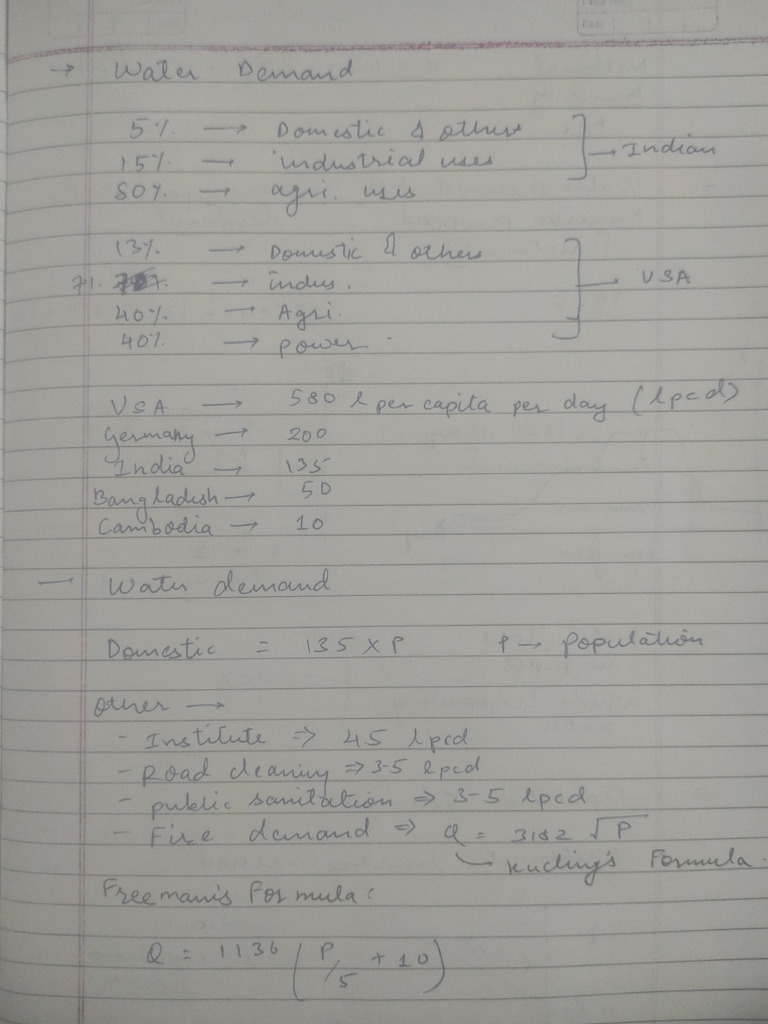 → Water Demand
5%. → Domestic & others
15%. → industrial uses ] → Indian
80%. → agri. uses
13%. → Domestic & others
71. → indus. ] → USA
40%. → Agri.
40%. → power
USA → 580 l per capita per day (lpcd)
Germany → 200
India → 135
Bangladesh → 50
Cambodia → 10
— Water demand
Domestic = 135 × P P → Population
Other →
- Institute ⇒ 45 lpcd
- Road cleaning ⇒ 3-5 lpcd
- public sanitation ⇒ 3-5 lpcd
- Fire demand ⇒ Q = 3182 √P
Kuching's Formula.
Freeman's Formula:
Q = 1136 (P/5 + 10)